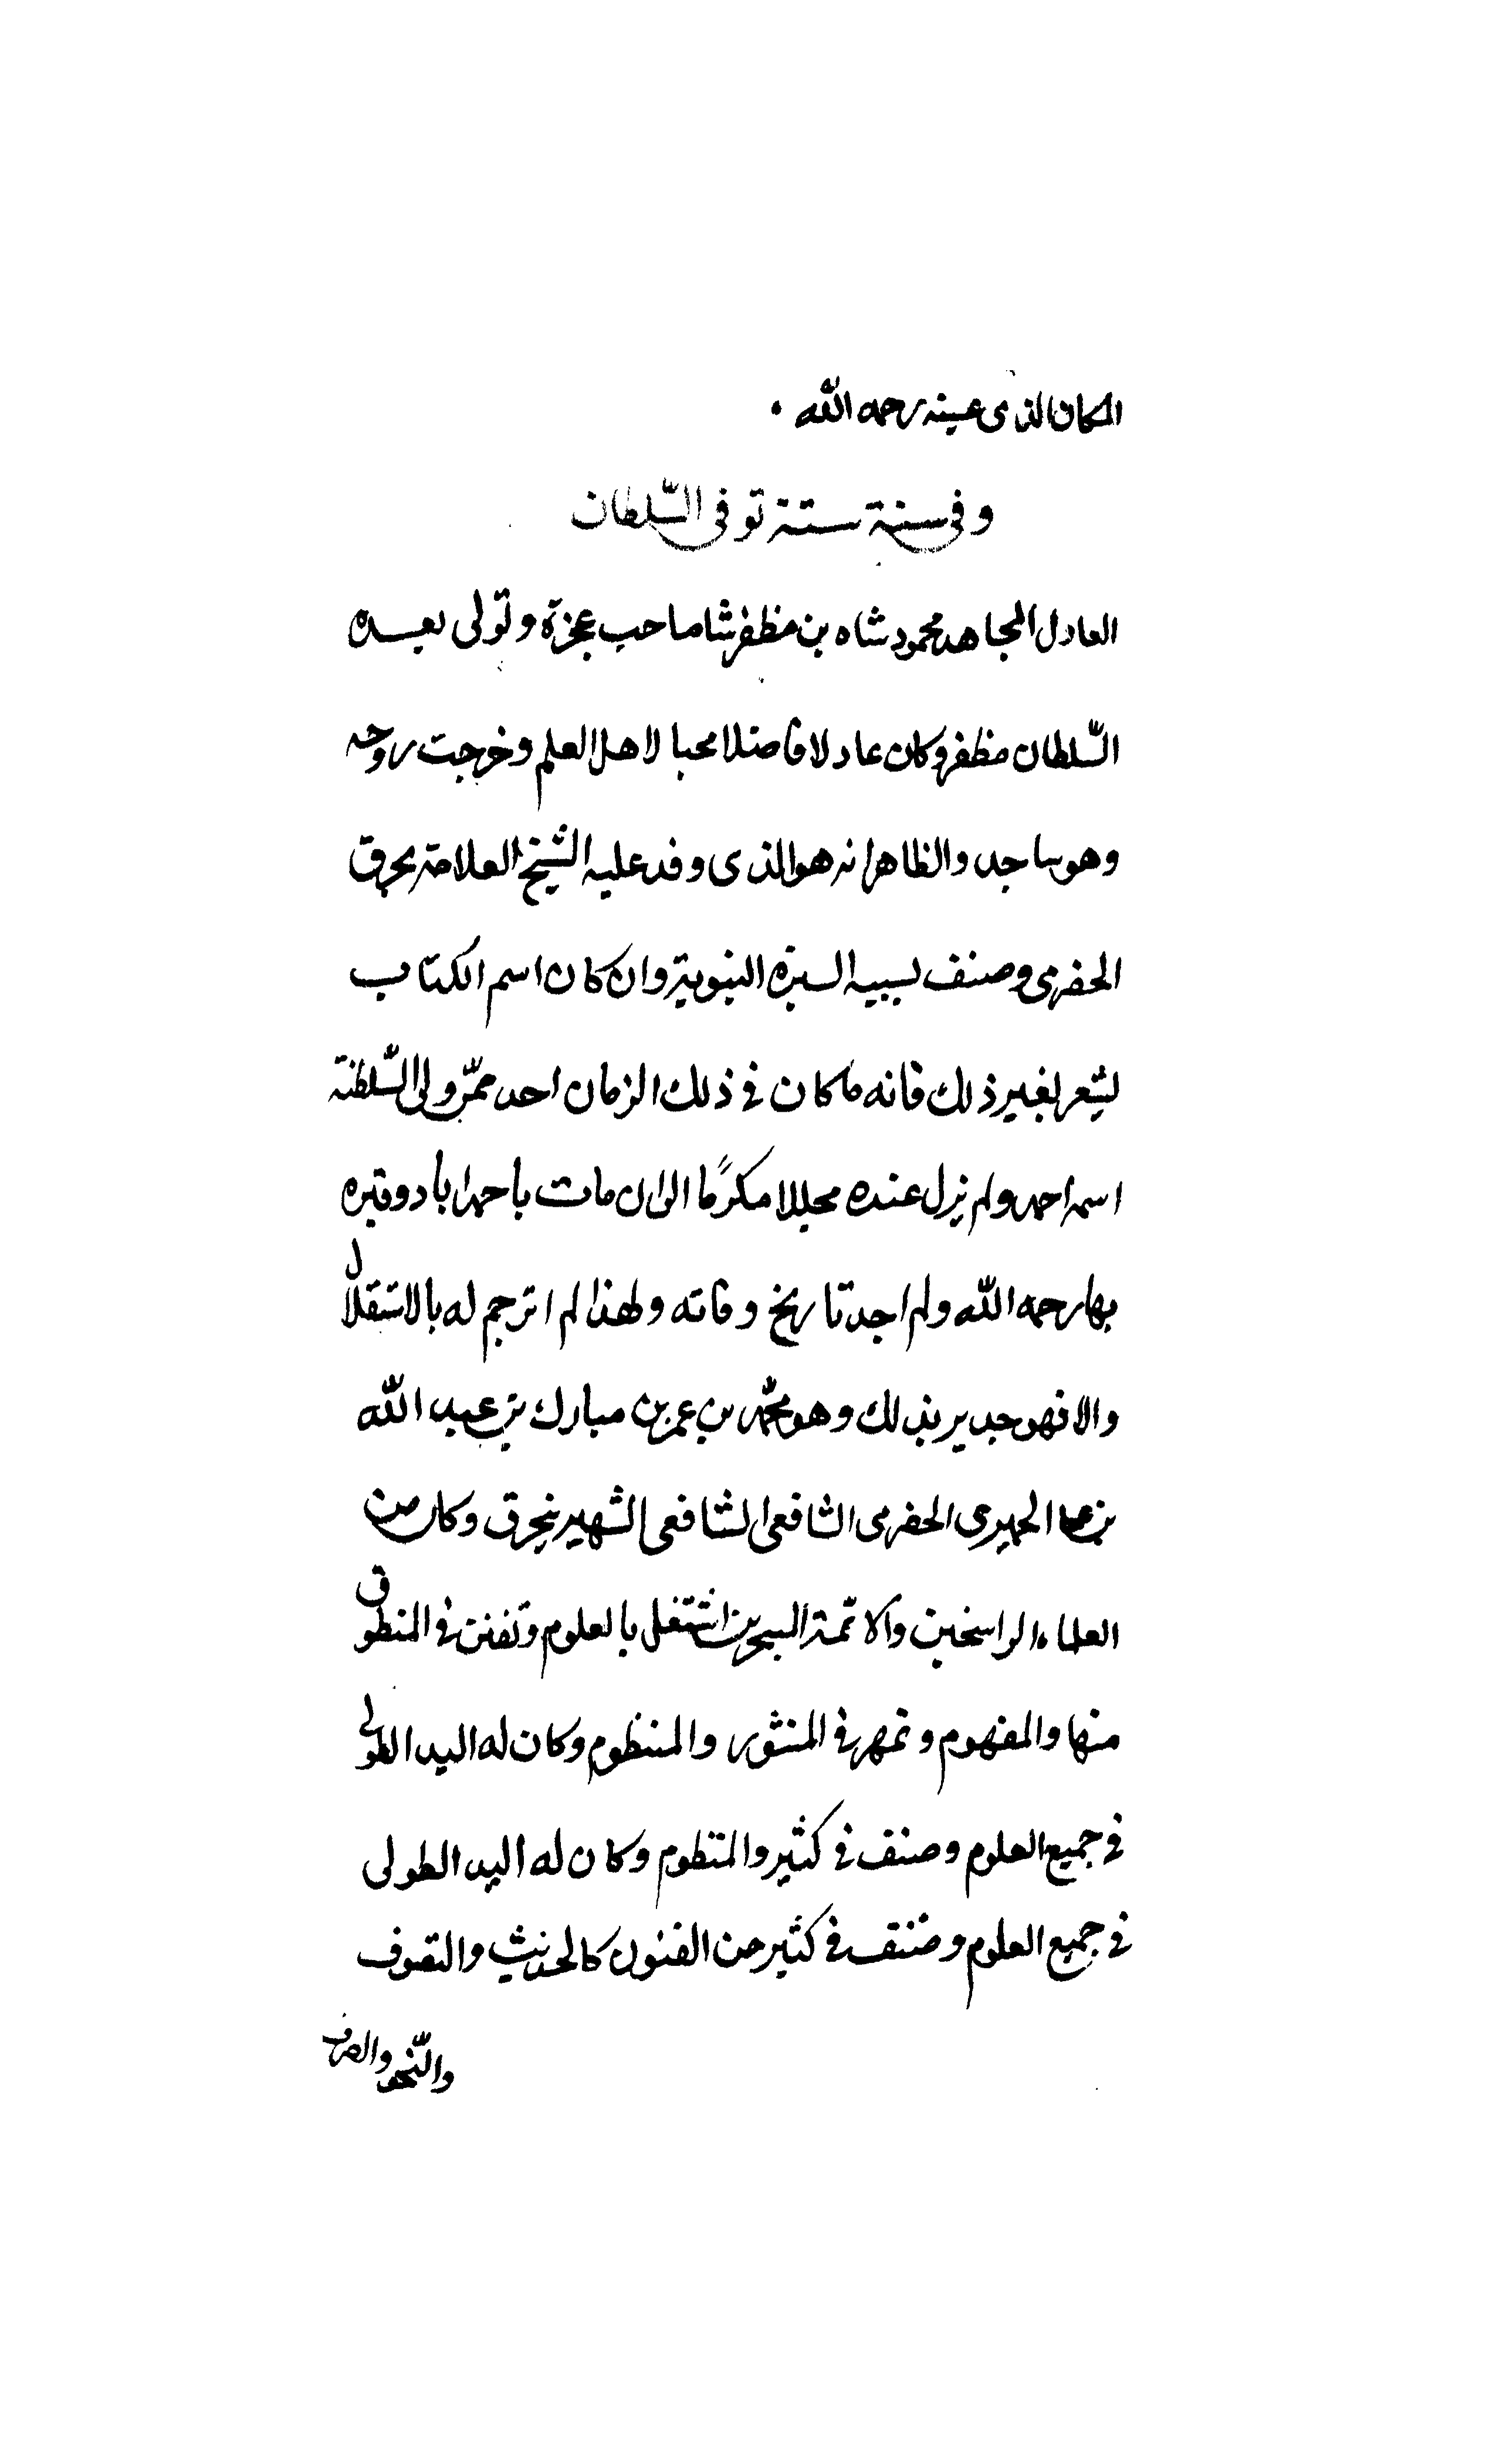 المكان الذى عينه رحمه الله .
وفى سنة ستة توفى السّلطان
العادل المجاهد محمود شاه بن مظفر شا صاحب عجزة وتولى بعده
السّلطان مظفر وكان عادلا فاضلا محبا لاهل العلم وخرجت روحه
وهو ساجد والظاهر انه هو الذى وفد عليه الشيخ العلامة بحرق
الحضرمى وصنف بسببه السيرة النبوية وان كان اسم الكتاب
يشعر بغير ذلك فانه ما كان فى ذلك الزمان احد ممّن ولى السّلطنة
اسمه احمد ولم يزل عنده مجللا مكرمًا الى ان مات بأحمدا بأد وقبره
بها رحمه الله ولم اجد تاريخ وفاته ولهذا لم اترجم له بالاستقلال
والا فهو جدير بذلك وهو محمّد بن عمر بن مبارك بن عبد الله
بن الحميرى الحضرمى الشافعى الشافعى الشهير ببحرق وكان من
العلماء الراسخين والائمة المتبحرين اشتغل بالعلوم وتفنن فى المنطوق
منها والمفهوم وتمهر فى المنثور والمنظوم وكان له اليد الطولى
فى جميع العلوم وصنف فى كثير والمنظوم وكان له اليد الطولى
فى جميع العلوم وصنف فى كثير من الفنون كالحديث والتصوف
والنّحو والصرف